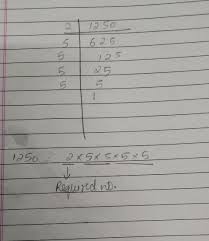 2 | 1250
5 | 625
5 | 125
5 | 25
5 | 5
| 1
1250 2×5×5×5×5
↓
Required no.